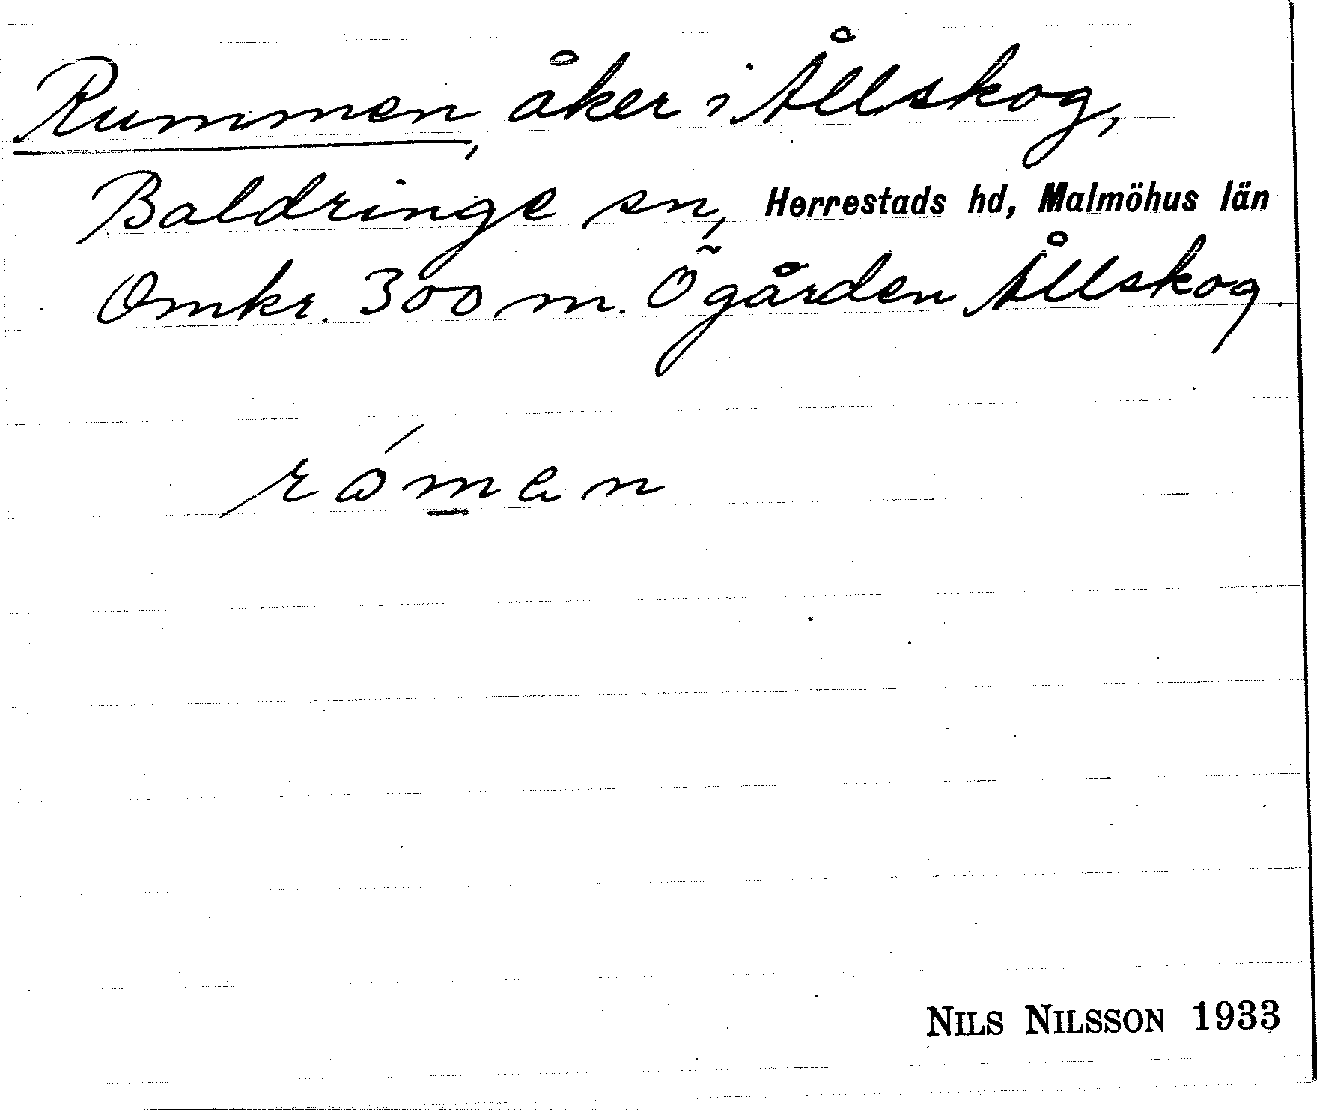 Rummen, åker i Ållskog,
Baldringe sn, Herrestads hd, Malmöhus län
Omkr. 300 m. Ö gården Ållskog.
rώman
NILS NILSSON 1933